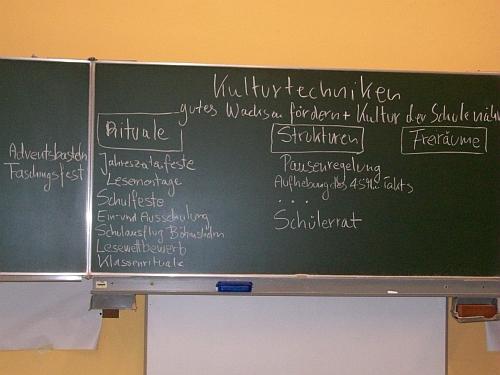 Kulturtechniken
gutes Wachsen fördern + Kultur der Schule
Rituale
Strukturen
Freiräume
Adventsbasteln
Faschingsfest
Jahreszeitenfeste
Lesemontage
Schulfeste
Ein- und Ausschulung
Schulausflug
Lesewettbewerb
Klassenrituale
Pausenregelung
Aufhebung des 45 Min Takts
. . .
Schülerrat